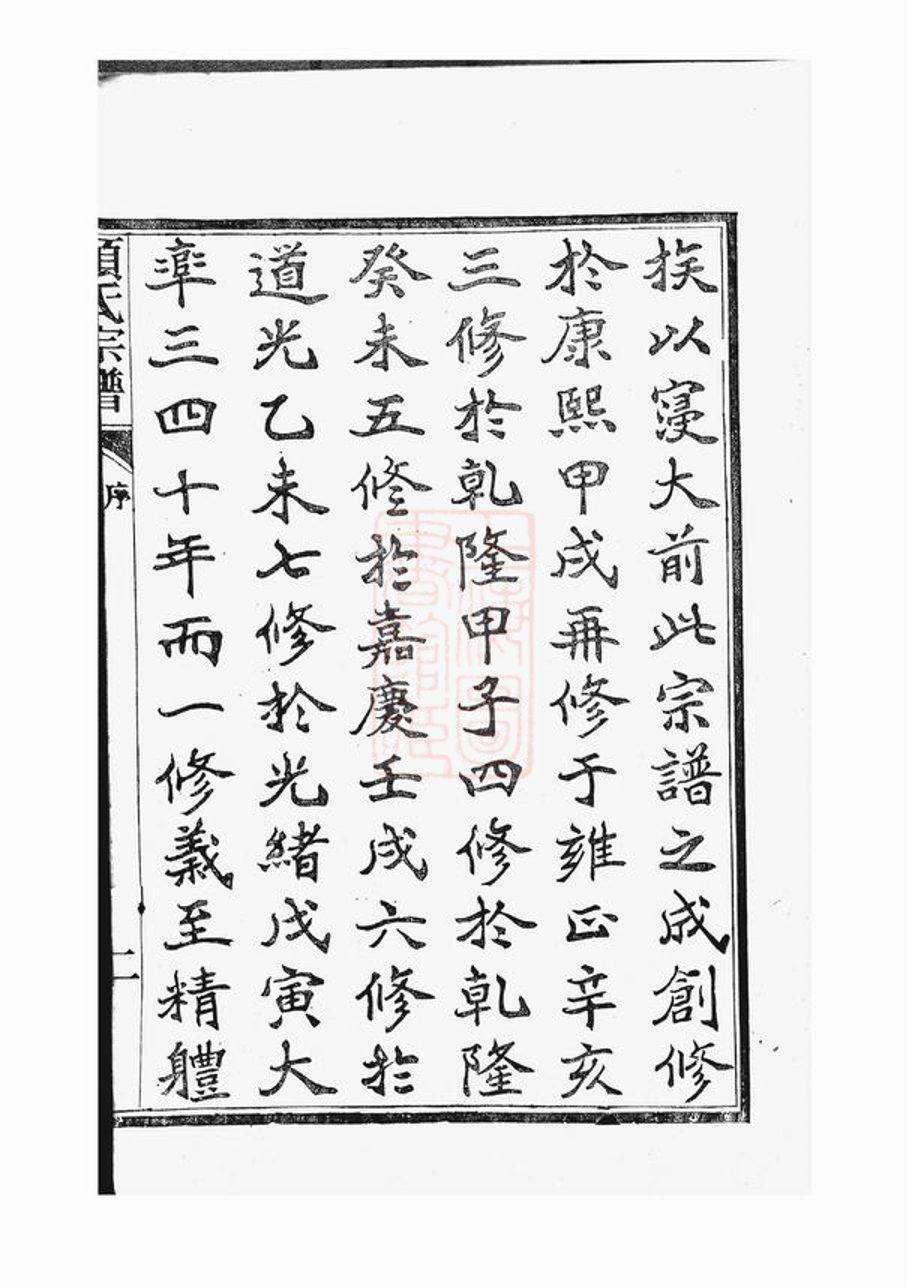 族以寖大前此宗譜之成創修
於康熙甲戌再修于雍正辛亥
三修於乾隆甲子四修於乾隆
癸未五修於嘉慶壬戌六修於
道光乙未七修於光緒戊寅大
率三四十年而一修義至精體
氏宗譜
序
二